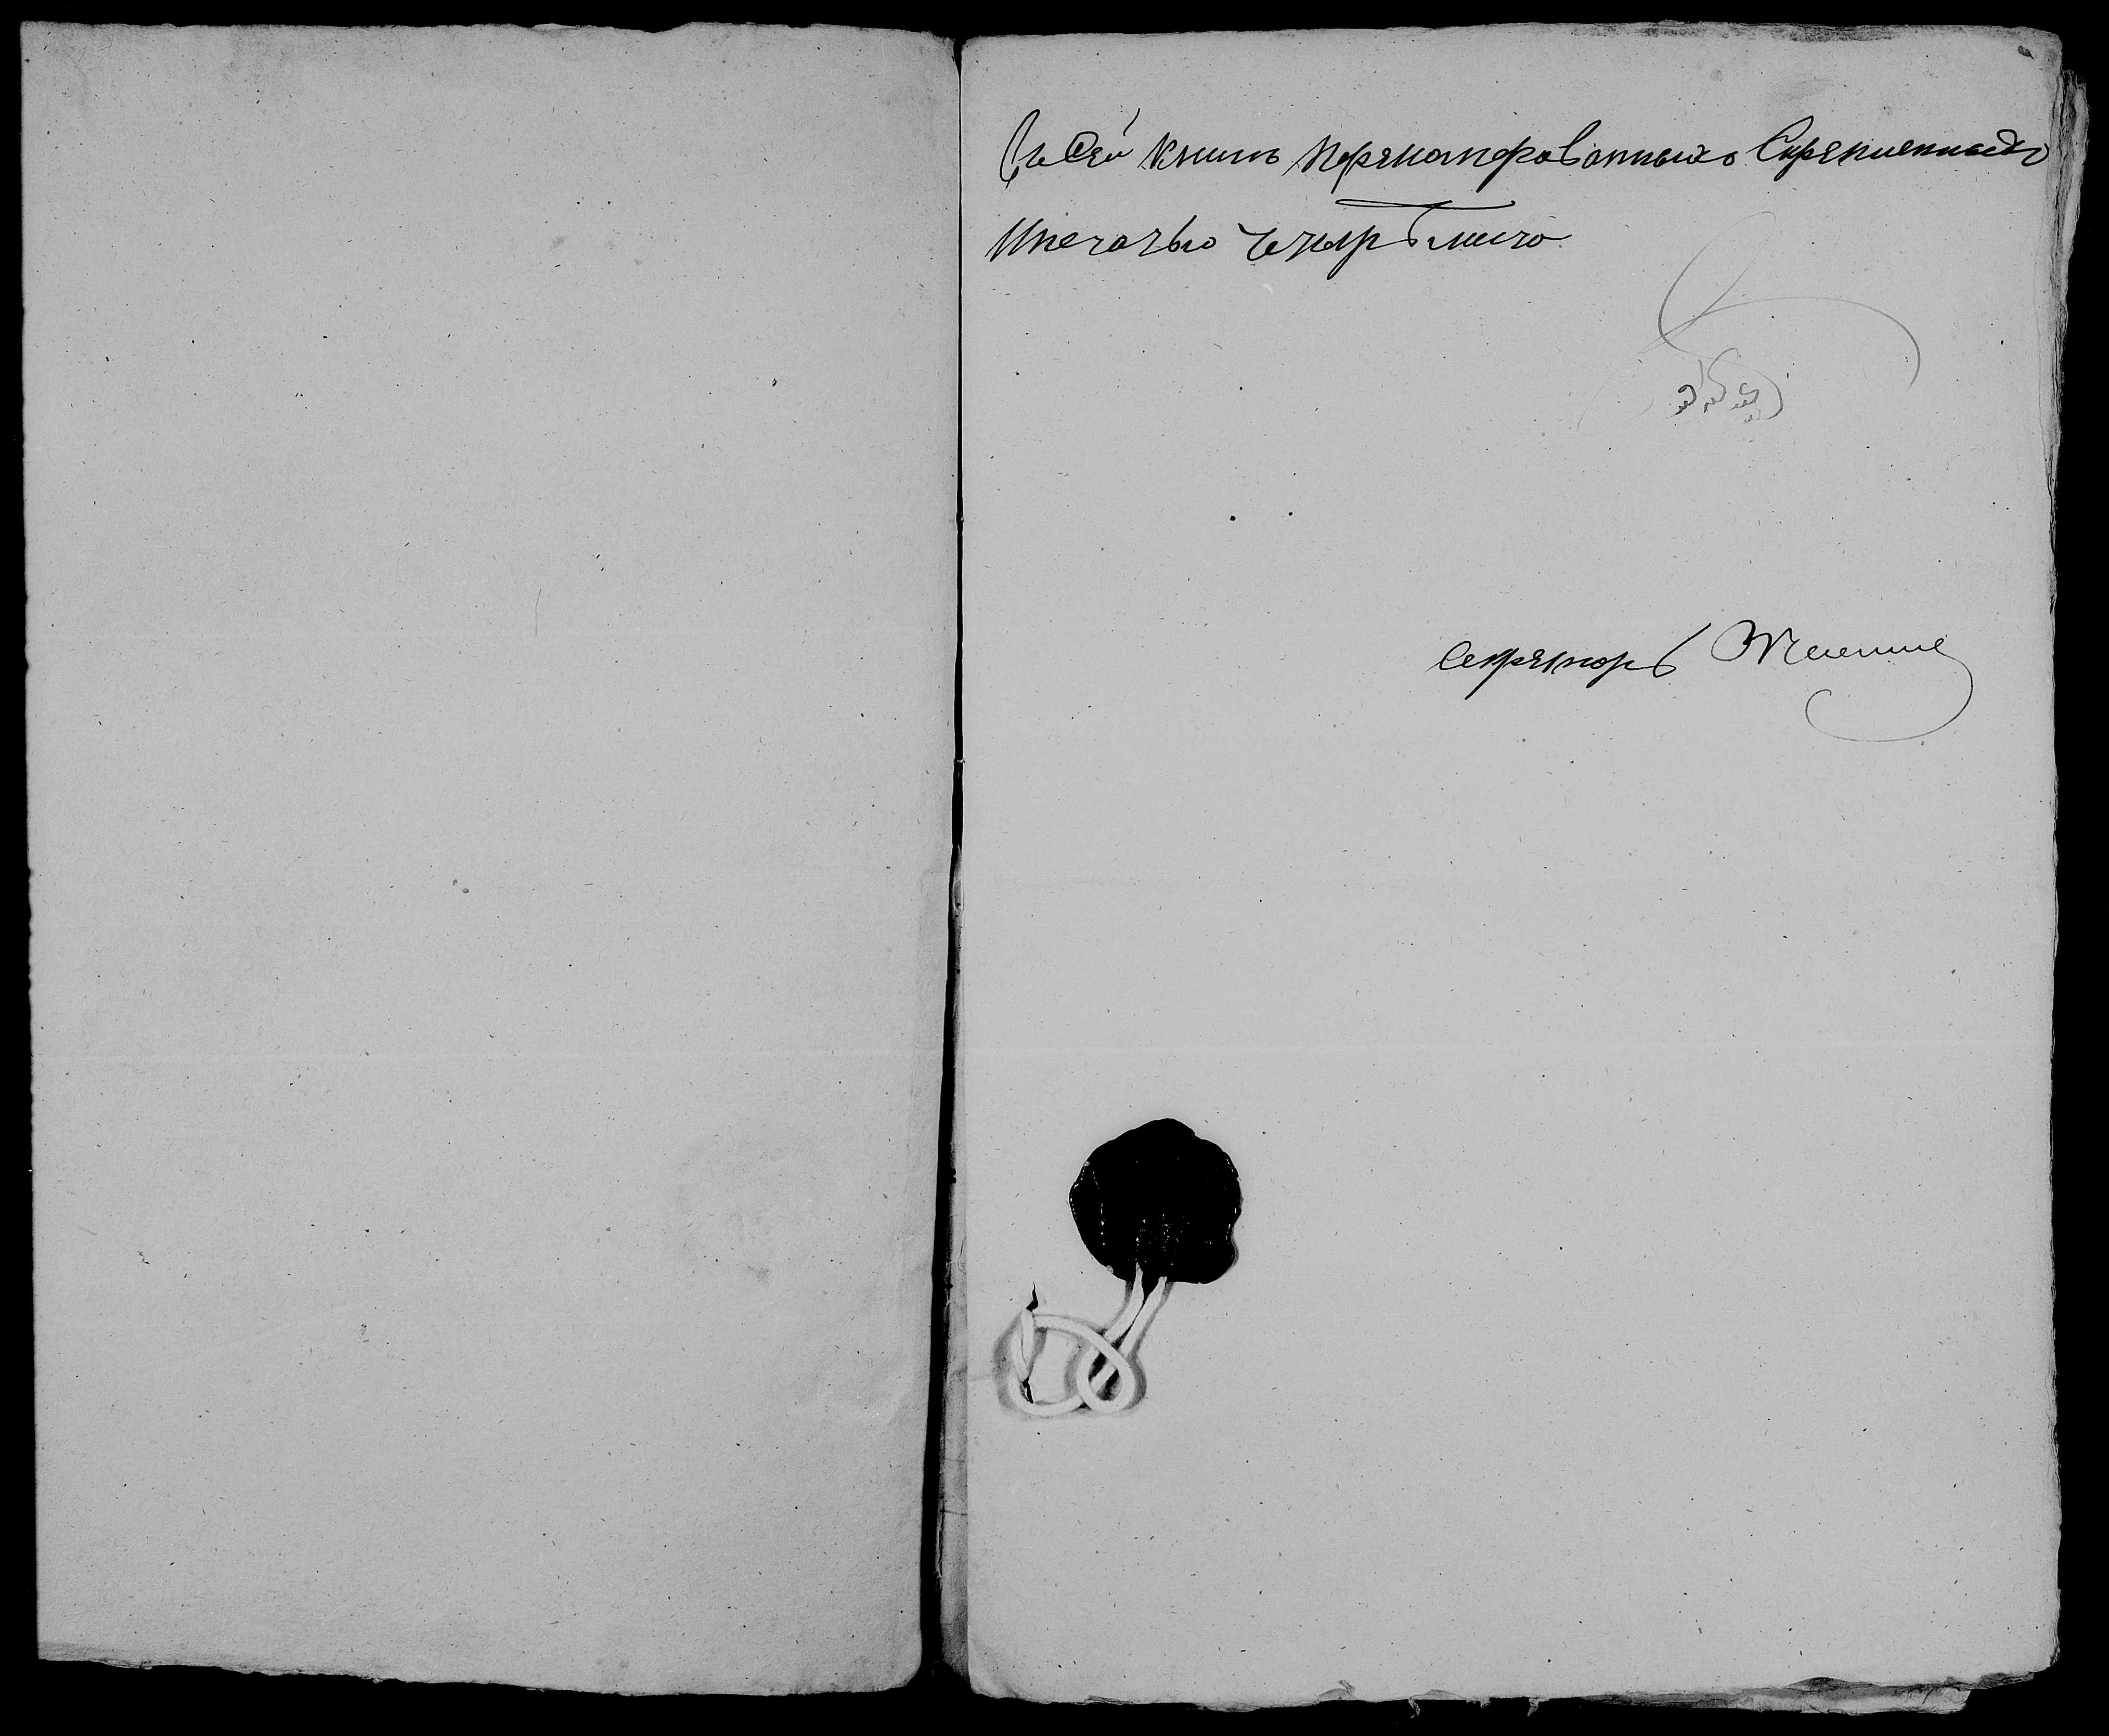 Въ Сей книгѣ перенумерованныхъ Скрепленныхъ
ипечатью четыре листа
Секретарь